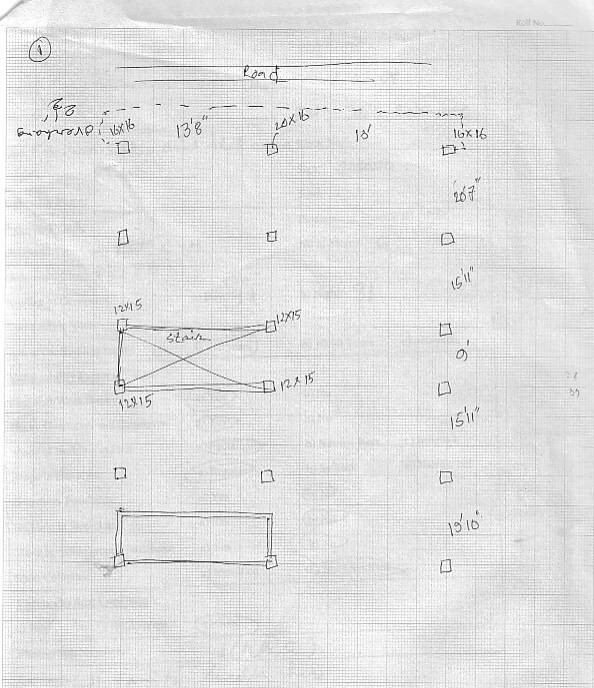 Roll No.
1
Road
overhang
16x16
13'8"
20x16
16x16
15'11"
12x15
12x15
stair
9'
12x15
12x15
15'11"
19'10"